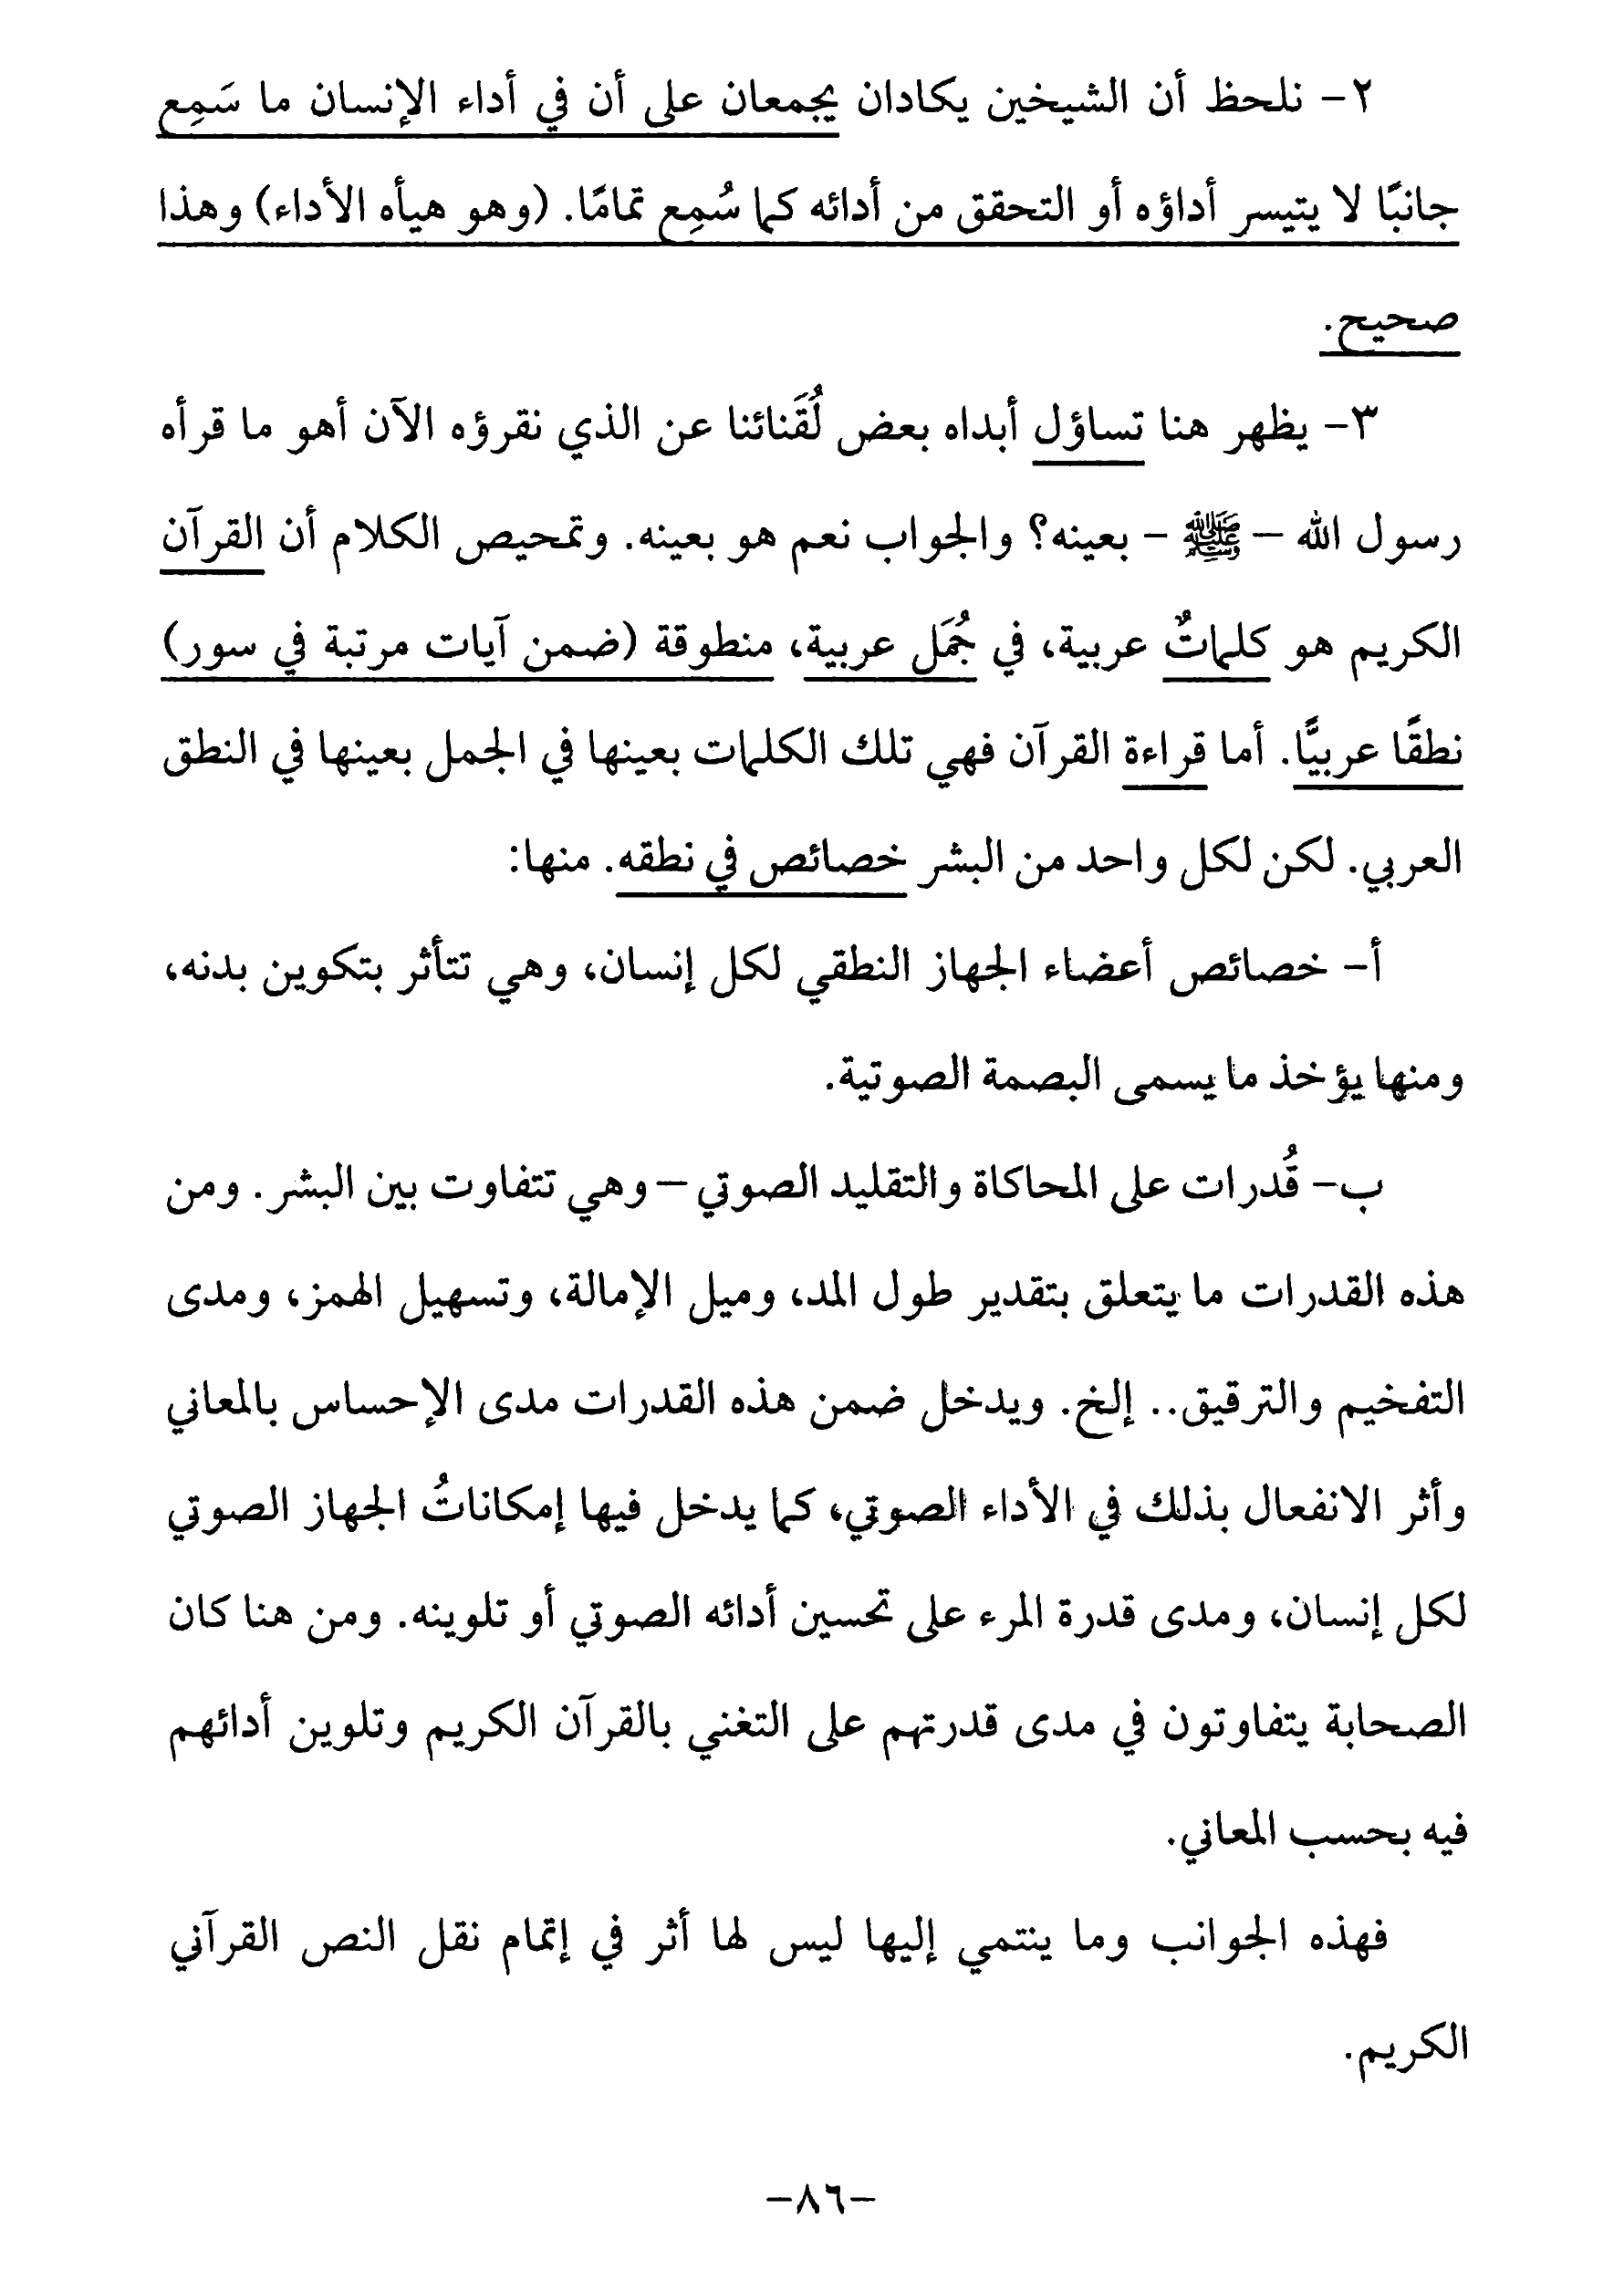 ٢- نلحظ أن الشيخين يكادان يجمعان على أن في أداء الإنسان ما سَمِع
جانبًا لا يتيسر أداؤه أو التحقق من أدائه كما سُمِع تمامًا. (وهو هيأه الأداء) وهذا
صحيح.
٣- يظهر هنا تساؤل أبداه بعض لُقَنائنا عن الذي نقرؤه الآن أهو ما قرأه
رسول الله – ﷺ – بعينه؟ والجواب نعم هو بعينه. وتمحيص الكلام أن القرآن
الكريم هو كلماتٌ عربية، في جُمَل عربية، منطوقة (ضمن آيات مرتبة في سور)
نطقًا عربيًّا. أما قراءة القرآن فهي تلك الكلمات بعينها في الجمل بعينها في النطق
العربي. لكن لكل واحد من البشر خصائص في نطقه. منها:
أ- خصائص أعضاء الجهاز النطقي لكل إنسان، وهي تتأثر بتكوين بدنه،
ومنها يؤخذ ما يسمى البصمة الصوتية.
ب- قُدرات على المحاكاة والتقليد الصوتي – وهي تتفاوت بين البشر. ومن
هذه القدرات ما يتعلق بتقدير طول المد، وميل الإمالة، وتسهيل الهمز، ومدى
التفخيم والترقيق.. إلخ. ويدخل ضمن هذه القدرات مدى الإحساس بالمعاني
وأثر الانفعال بذلك في الأداء الصوتي، كما يدخل فيها إمكاناتُ الجهاز الصوتي
لكل إنسان، ومدى قدرة المرء على تحسين أدائه الصوتي أو تلوينه. ومن هنا كان
الصحابة يتفاوتون في مدى قدرتهم على التغني بالقرآن الكريم وتلوين أدائهم
فيه بحسب المعاني.
فهذه الجوانب وما ينتمي إليها ليس لها أثر في إتمام نقل النص القرآني
الكريم.
–٨٦–